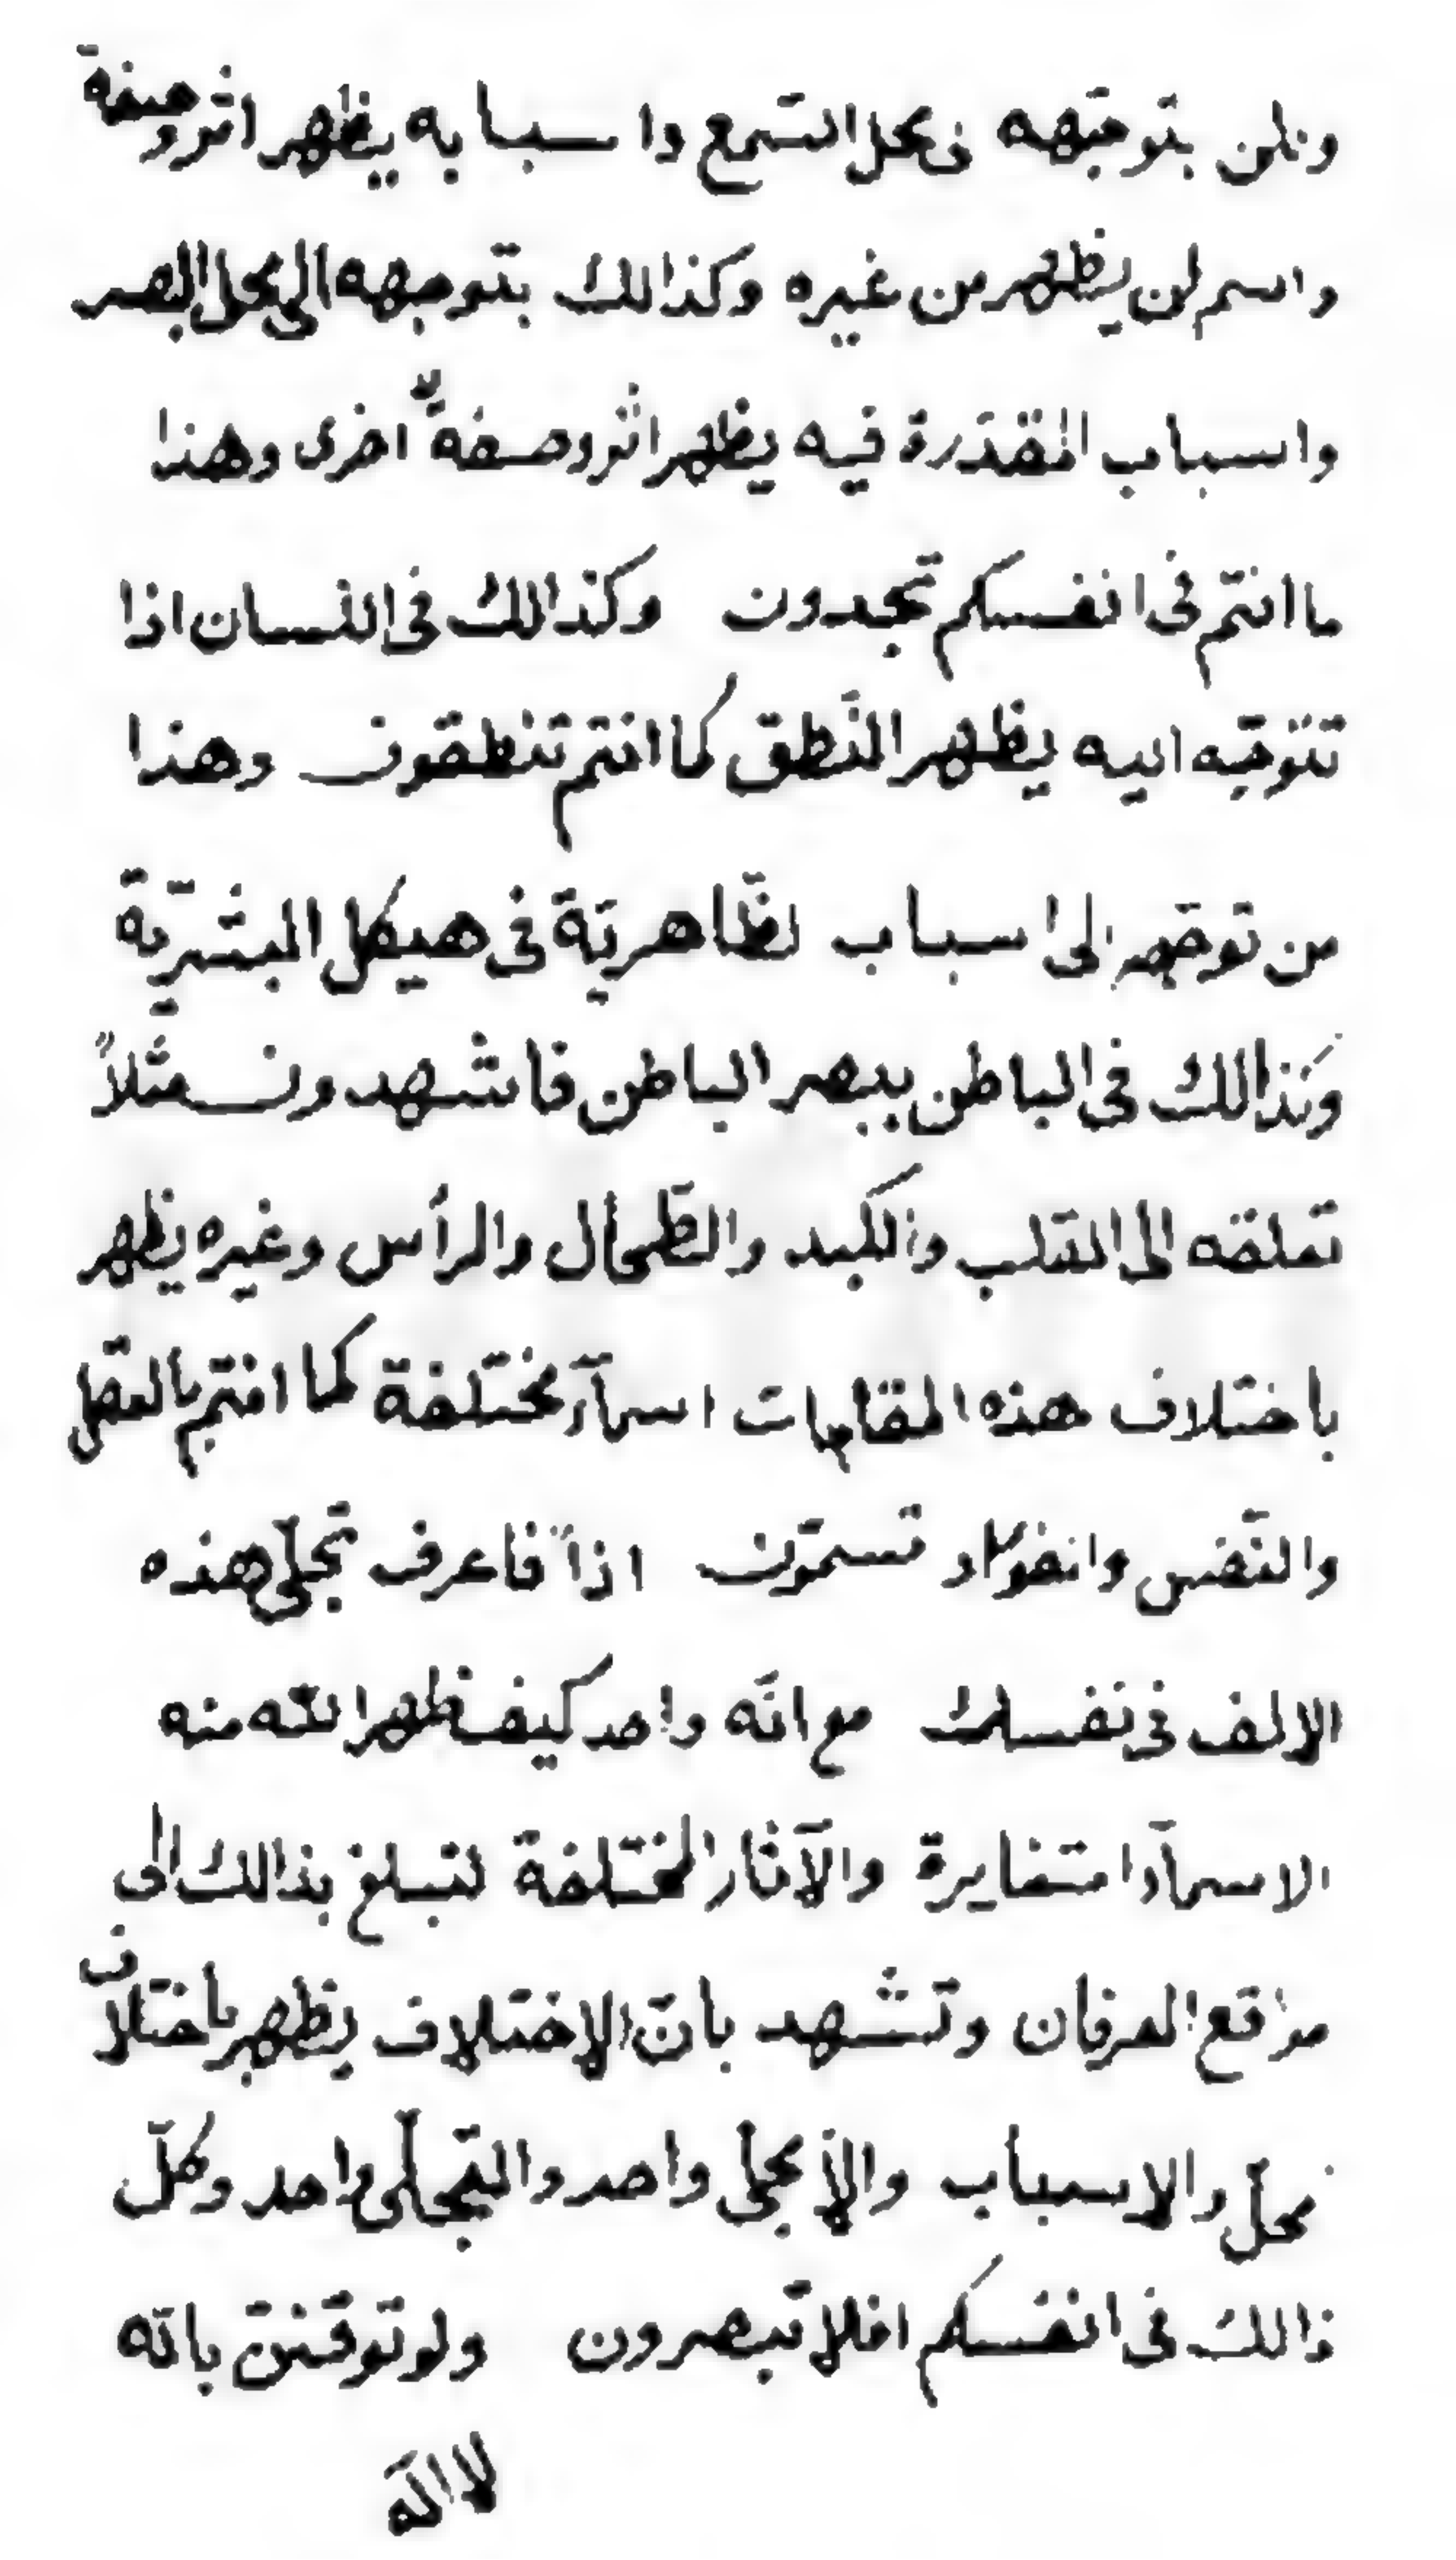 ولكن بتوجّهه فى محل السّمع واسبابه يظهر اثر وصفة
واسم لن يظهر من غيره وكذالك بتوجهه الى محل البصر
واسباب المقدّرة فيه يظهر اثر وصفةٌ اخرى وهذا
ما انتم فى انفسكم تجدون وكذالك فى اللسان اذا
تتوجّه اليه يظهر النّطق كما انتم تنطقون وهذا
من توجّهه الى اسباب الظّاهريّة فى هيكل البشريّة
وكذالك فى الباطن ببصر الباطن فاشهدون مثلاً
تعلقه الى القلب والكبد والطّحال والرأس وغيره يظهر
باختلاف هذه المقامات اسمآء مختلفة كما انتم بالعقل
والنّفس والفؤاد تسمّون اذاً فاعرف تجلّى هذه
الالف فى نفسك مع انّه واحد كيف ظهر الله منه
الاسمآء المتغايرة والآثار المختلفة لتبلغ بذالك الى
مواقع العرفان وتشهد بانّ الاختلاف يظهر باختلاف
محلّ والاسباب والا مجلى واحد والتّجلّى واحد وكلّ
ذالك فى انفسكم افلا تبصرون ولو توقننّ بانّه
لا اله